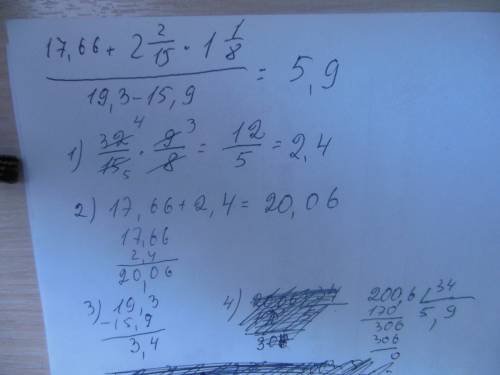 17,66 + 2 2/15 · 1 1/8
19,3 - 15,9
= 5,9
1) 32/15 · 9/8 = 12/5 = 2,4
4 5 3
2) 17,66 + 2,4 = 20,06
17,66
2,4
20,06
3) 19,3
- 15,9
3,4
4)
200,6 34
170 5,9
306
306
0